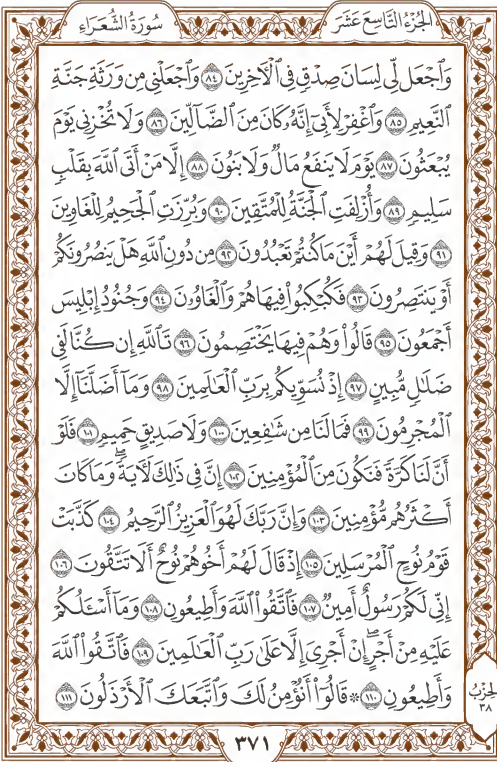 الجُزْءُ التَّاسِعَ عَشَرَ
سُورَةُ الشُّعَرَاءِ
وَٱجْعَل لِّى لِسَانَ صِدْقٍ فِى ٱلْـَٔاخِرِينَ ٨٤ وَٱجْعَلْنِى مِن وَرَثَةِ جَنَّةِ
ٱلنَّعِيمِ ٨٥ وَٱغْفِرْ لِأَبِىٓ إِنَّهُۥ كَانَ مِنَ ٱلضَّآلِّينَ ٨٦ وَلَا تُخْزِنِى يَوْمَ
يُبْعَثُونَ ٨٧ يَوْمَ لَا يَنفَعُ مَالٌ وَلَا بَنُونَ ٨٨ إِلَّا مَنْ أَتَى ٱللَّهَ بِقَلْبٍ
سَلِيمٍ ٨٩ وَأُزْلِفَتِ ٱلْجَنَّةُ لِلْمُتَّقِينَ ٩٠ وَبُرِّزَتِ ٱلْجَحِيمُ لِلْغَاوِينَ
٩١ وَقِيلَ لَهُمْ أَيْنَ مَا كُنتُمْ تَعْبُدُونَ ٩٢ مِن دُونِ ٱللَّهِ هَلْ يَنصُرُونَكُمْ
أَوْ يَنتَصِرُونَ ٩٣ فَكُبْكِبُوا۟ فِيهَا هُمْ وَٱلْغَاوُۥنَ ٩٤ وَجُنُودُ إِبْلِيسَ
أَجْمَعُونَ ٩٥ قَالُوا۟ وَهُمْ فِيهَا يَخْتَصِمُونَ ٩٦ تَٱللَّهِ إِن كُنَّا لَفِى
ضَلَٰلٍ مُّبِينٍ ٩٧ إِذْ نُسَوِّيكُم بِرَبِّ ٱلْعَٰلَمِينَ ٩٨ وَمَآ أَضَلَّنَآ إِلَّا
ٱلْمُجْرِمُونَ ٩٩ فَمَا لَنَا مِن شَٰفِعِينَ ١٠٠ وَلَا صَدِيقٍ حَمِيمٍ ١٠١ فَلَوْ
أَنَّ لَنَا كَرَّةً فَنَكُونَ مِنَ ٱلْمُؤْمِنِينَ ١٠٢ إِنَّ فِى ذَٰلِكَ لَـَٔايَةً ۖ وَمَا كَانَ
أَكْثَرُهُم مُّؤْمِنِينَ ١٠٣ وَإِنَّ رَبَّكَ لَهُوَ ٱلْعَزِيزُ ٱلرَّحِيمُ ١٠٤ كَذَّبَتْ
قَوْمُ نُوحٍ ٱلْمُرْسَلِينَ ١٠٥ إِذْ قَالَ لَهُمْ أَخُوهُمْ نُوحٌ أَلَا تَتَّقُونَ ١٠٦
إِنِّى لَكُمْ رَسُولٌ أَمِينٌ ١٠٧ فَٱتَّقُوا۟ ٱللَّهَ وَأَطِيعُونِ ١٠٨ وَمَآ أَسْـَٔلُكُمْ
عَلَيْهِ مِنْ أَجْرٍ ۖ إِنْ أَجْرِىَ إِلَّا عَلَىٰ رَبِّ ٱلْعَٰلَمِينَ ١٠٩ فَٱتَّقُوا۟ ٱللَّهَ
وَأَطِيعُونِ ١١٠ ۞ قَالُوٓا۟ أَنُؤْمِنُ لَكَ وَٱتَّبَعَكَ ٱلْأَرْذَلُونَ ١١١
الحِزْبُ
٣٨
٣٧١